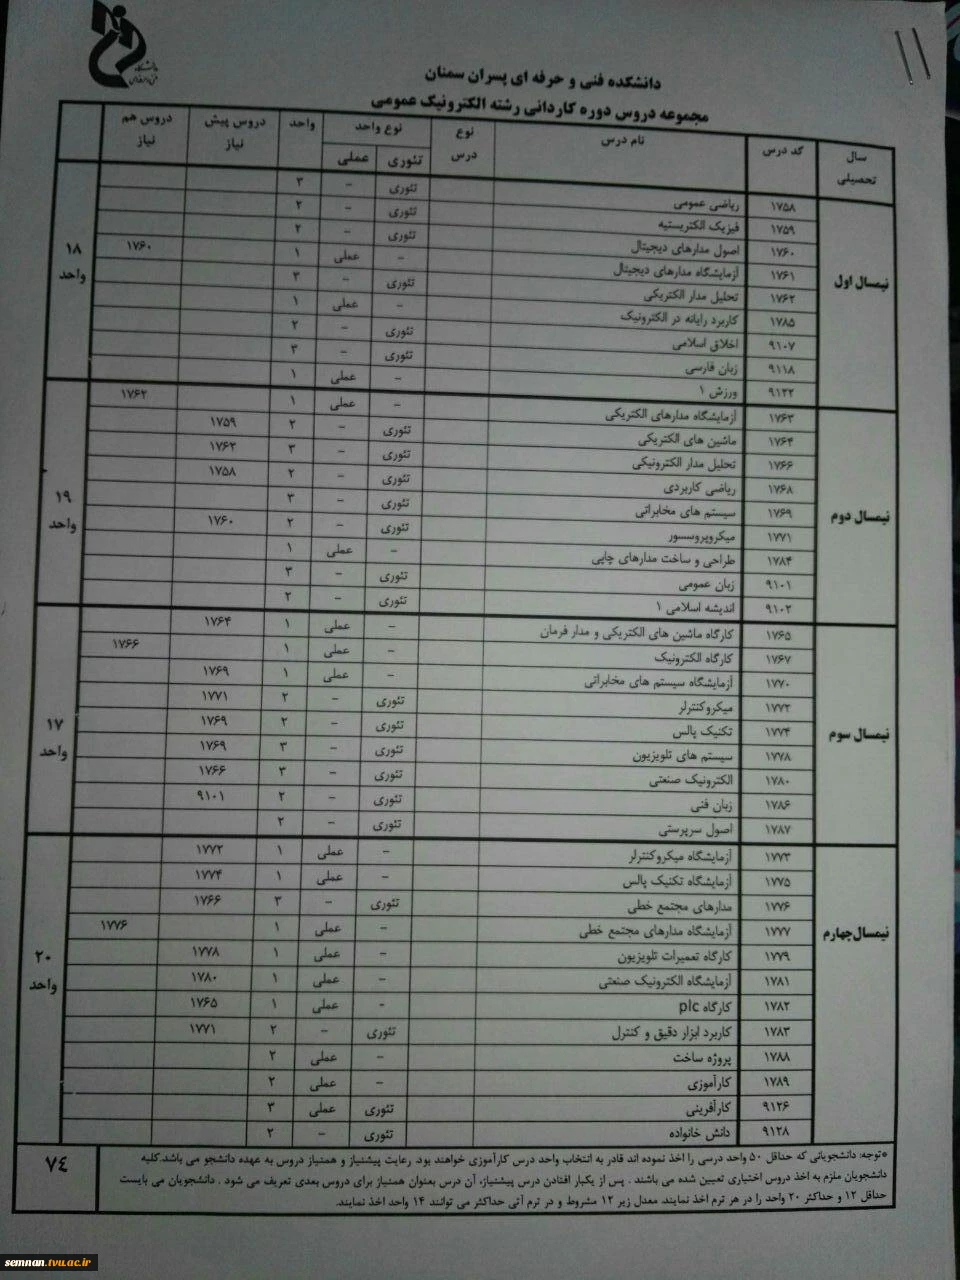 دانشگاه فنی و حرفه‌ای
دانشکده فنی و حرفه ای پسران سمنان
مجموعه دروس دوره کاردانی رشته الکترونیک عمومی
سال تحصیلی کد درس نام درس نوع درس نوع واحد واحد دروس پیش نیاز دروس هم نیاز
تئوری عملی
نیمسال اول
۱۷۵۸ ریاضی عمومی تئوری - ۳
۱۷۵۹ فیزیک الکتریسیته تئوری - ۲
۱۷۶۰ اصول مدارهای دیجیتال تئوری - ۲
۱۷۶۱ آزمایشگاه مدارهای دیجیتال - عملی ۱ ۱۷۶۰
۱۷۶۲ تحلیل مدار الکتریکی تئوری - ۳
۱۷۸۵ کاربرد رایانه در الکترونیک - عملی ۱
۹۱۰۷ اخلاق اسلامی تئوری - ۲
۹۱۱۸ زبان فارسی تئوری - ۳
۹۱۲۲ ورزش ۱ - عملی ۱
۱۸ واحد
نیمسال دوم
۱۷۶۳ آزمایشگاه مدارهای الکتریکی - عملی ۱ ۱۷۶۲
۱۷۶۴ ماشین های الکتریکی تئوری - ۲ ۱۷۵۹
۱۷۶۶ تحلیل مدار الکترونیکی تئوری - ۳ ۱۷۶۲
۱۷۶۸ ریاضی کاربردی تئوری - ۲ ۱۷۵۸
۱۷۶۹ سیستم های مخابراتی تئوری - ۳
۱۷۷۱ میکروپروسسور تئوری - ۲ ۱۷۶۰
۱۷۸۴ طراحی و ساخت مدارهای چاپی - عملی ۱
۹۱۰۱ زبان عمومی تئوری - ۳
۹۱۰۲ اندیشه اسلامی ۱ تئوری - ۲
۱۹ واحد
نیمسال سوم
۱۷۶۵ کارگاه ماشین های الکتریکی و مدار فرمان - عملی ۱ ۱۷۶۴
۱۷۶۷ کارگاه الکترونیک - عملی ۱ ۱۷۶۶
۱۷۷۰ آزمایشگاه سیستم های مخابراتی - عملی ۱ ۱۷۶۹
۱۷۷۲ میکروکنترلر تئوری - ۲ ۱۷۷۱
۱۷۷۴ تکنیک پالس تئوری - ۲ ۱۷۶۹
۱۷۷۸ سیستم های تلویزیون تئوری - ۳ ۱۷۶۹
۱۷۸۰ الکترونیک صنعتی تئوری - ۳ ۱۷۶۶
۱۷۸۶ زبان فنی تئوری - ۲ ۹۱۰۱
۱۷۸۷ اصول سرپرستی تئوری - ۲
۱۷ واحد
نیمسال چهارم
۱۷۷۳ آزمایشگاه میکروکنترلر - عملی ۱ ۱۷۷۲
۱۷۷۵ آزمایشگاه تکنیک پالس - عملی ۱ ۱۷۷۴
۱۷۷۶ مدارهای مجتمع خطی تئوری - ۳ ۱۷۶۶
۱۷۷۷ آزمایشگاه مدارهای مجتمع خطی - عملی ۱ ۱۷۷۶
۱۷۷۹ کارگاه تعمیرات تلویزیون - عملی ۱ ۱۷۷۸
۱۷۸۱ آزمایشگاه الکترونیک صنعتی - عملی ۱ ۱۷۸۰
۱۷۸۲ کارگاه plc - عملی ۱ ۱۷۶۵
۱۷۸۳ کاربرد ابزار دقیق و کنترل تئوری - ۲ ۱۷۷۱
۱۷۸۸ پروژه ساخت - عملی ۲
۱۷۸۹ کارآموزی - عملی ۲
۹۱۲۶ کارآفرینی تئوری عملی ۳
۹۱۲۸ دانش خانواده تئوری - ۲
۲۰ واحد
*توجه: دانشجویانی که حداقل ۵۰ واحد درسی را اخذ نموده اند قادر به انتخاب واحد درس کارآموزی خواهند بود. رعایت پیشنیاز و همنیاز دروس به عهده دانشجو می باشد.کلیه
دانشجویان ملزم به اخذ دروس اختیاری تعیین شده می باشند . پس از یکبار افتادن درس پیشنیاز، آن درس بعنوان همنیاز برای دروس بعدی تعریف می شود . دانشجویان می بایست
حداقل ۱۲ و حداکثر ۲۰ واحد را در هر ترم اخذ نمایند. معدل زیر ۱۲ مشروط و در ترم آتی حداکثر می توانند ۱۴ واحد اخذ نمایند.
۷۴
semnan.tvu.ac.ir